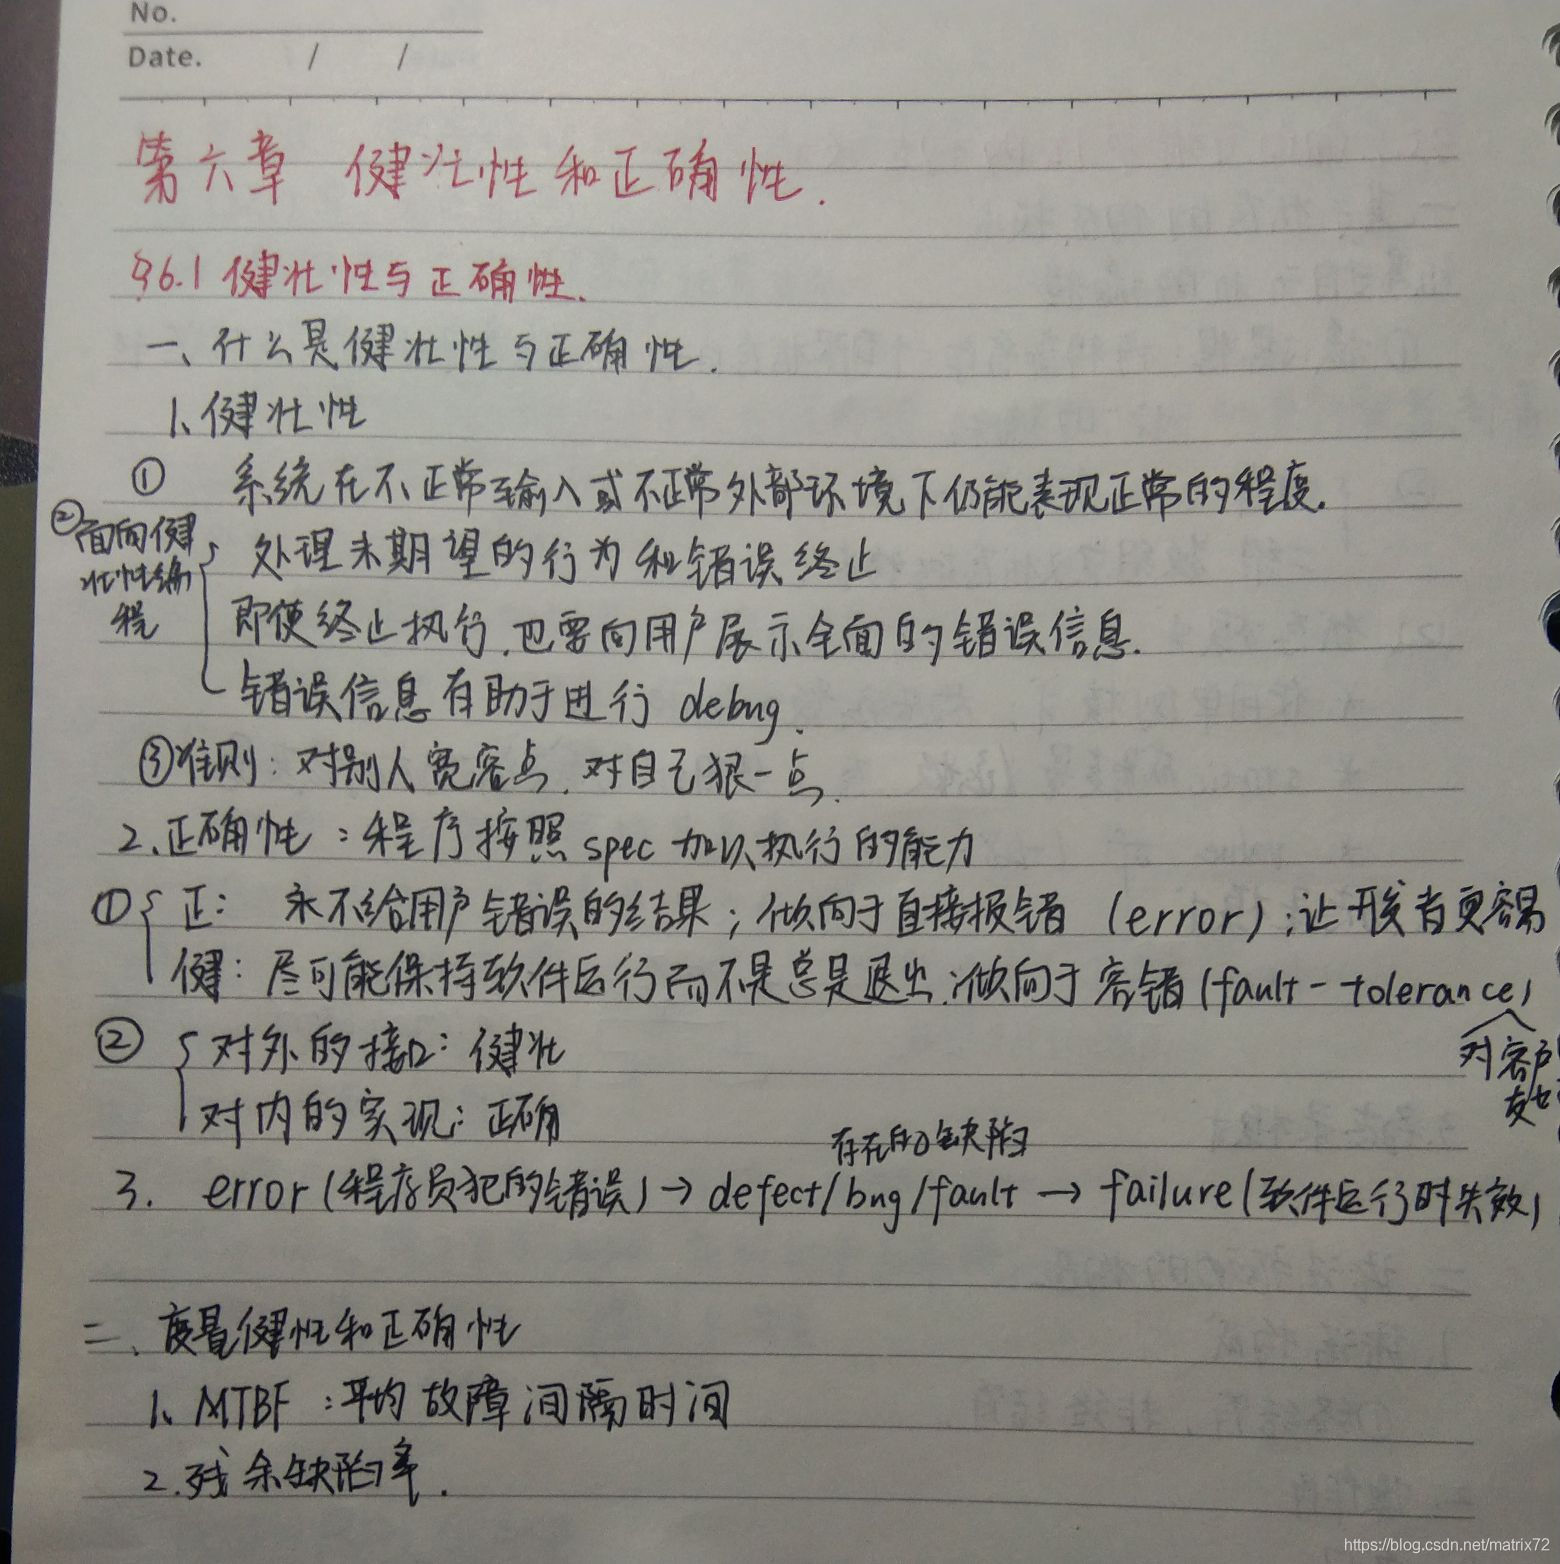 No.
Date. / /
第六章 健壮性和正确性.
§6.1 健壮性与正确性.
一、什么是健壮性与正确性.
1、健壮性
① 系统在不正常输入或不正常外部环境下仍能表现正常的程度.
②面向健壮性编程
处理未期望的行为和错误终止
即使终止执行,也要向用户展示全面的错误信息.
错误信息有助于进行 debug.
③准则:对别人宽容点,对自己狠一点.
2.正确性:程序按照 spec 加以执行的能力
① 正: 永不给用户错误的结果;倾向于直接报错 (error);让开发者更容易
健:尽可能保持软件运行而不是总是退出;倾向于容错(fault-tolerance)
对客户友好
② 对外的接口:健壮
对内的实现:正确
存在的缺陷
3. error(程序员犯的错误)→defect/bug/fault→failure(软件运行时失效)
二、度量健壮性和正确性
1、MTBF:平均故障间隔时间
2.残余缺陷率.
https://blog.csdn.net/matrix72